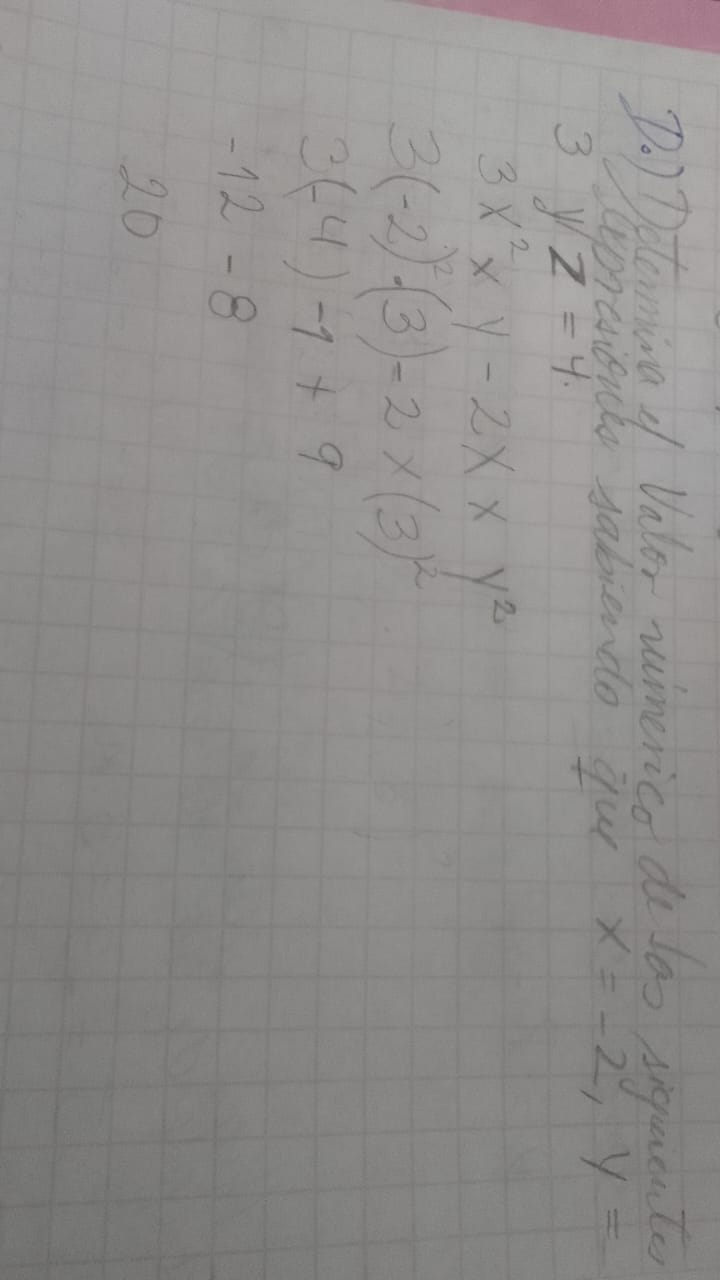 D.) Determina el Valor númerico de las siguientes
expresiones sabiendo que x = -2, y =
3 y z = 4.
3x² x y - 2x x y²
3(-2)² · (3) - 2 x (3)²
3(-4) -1 + 9
-12 - 8
20